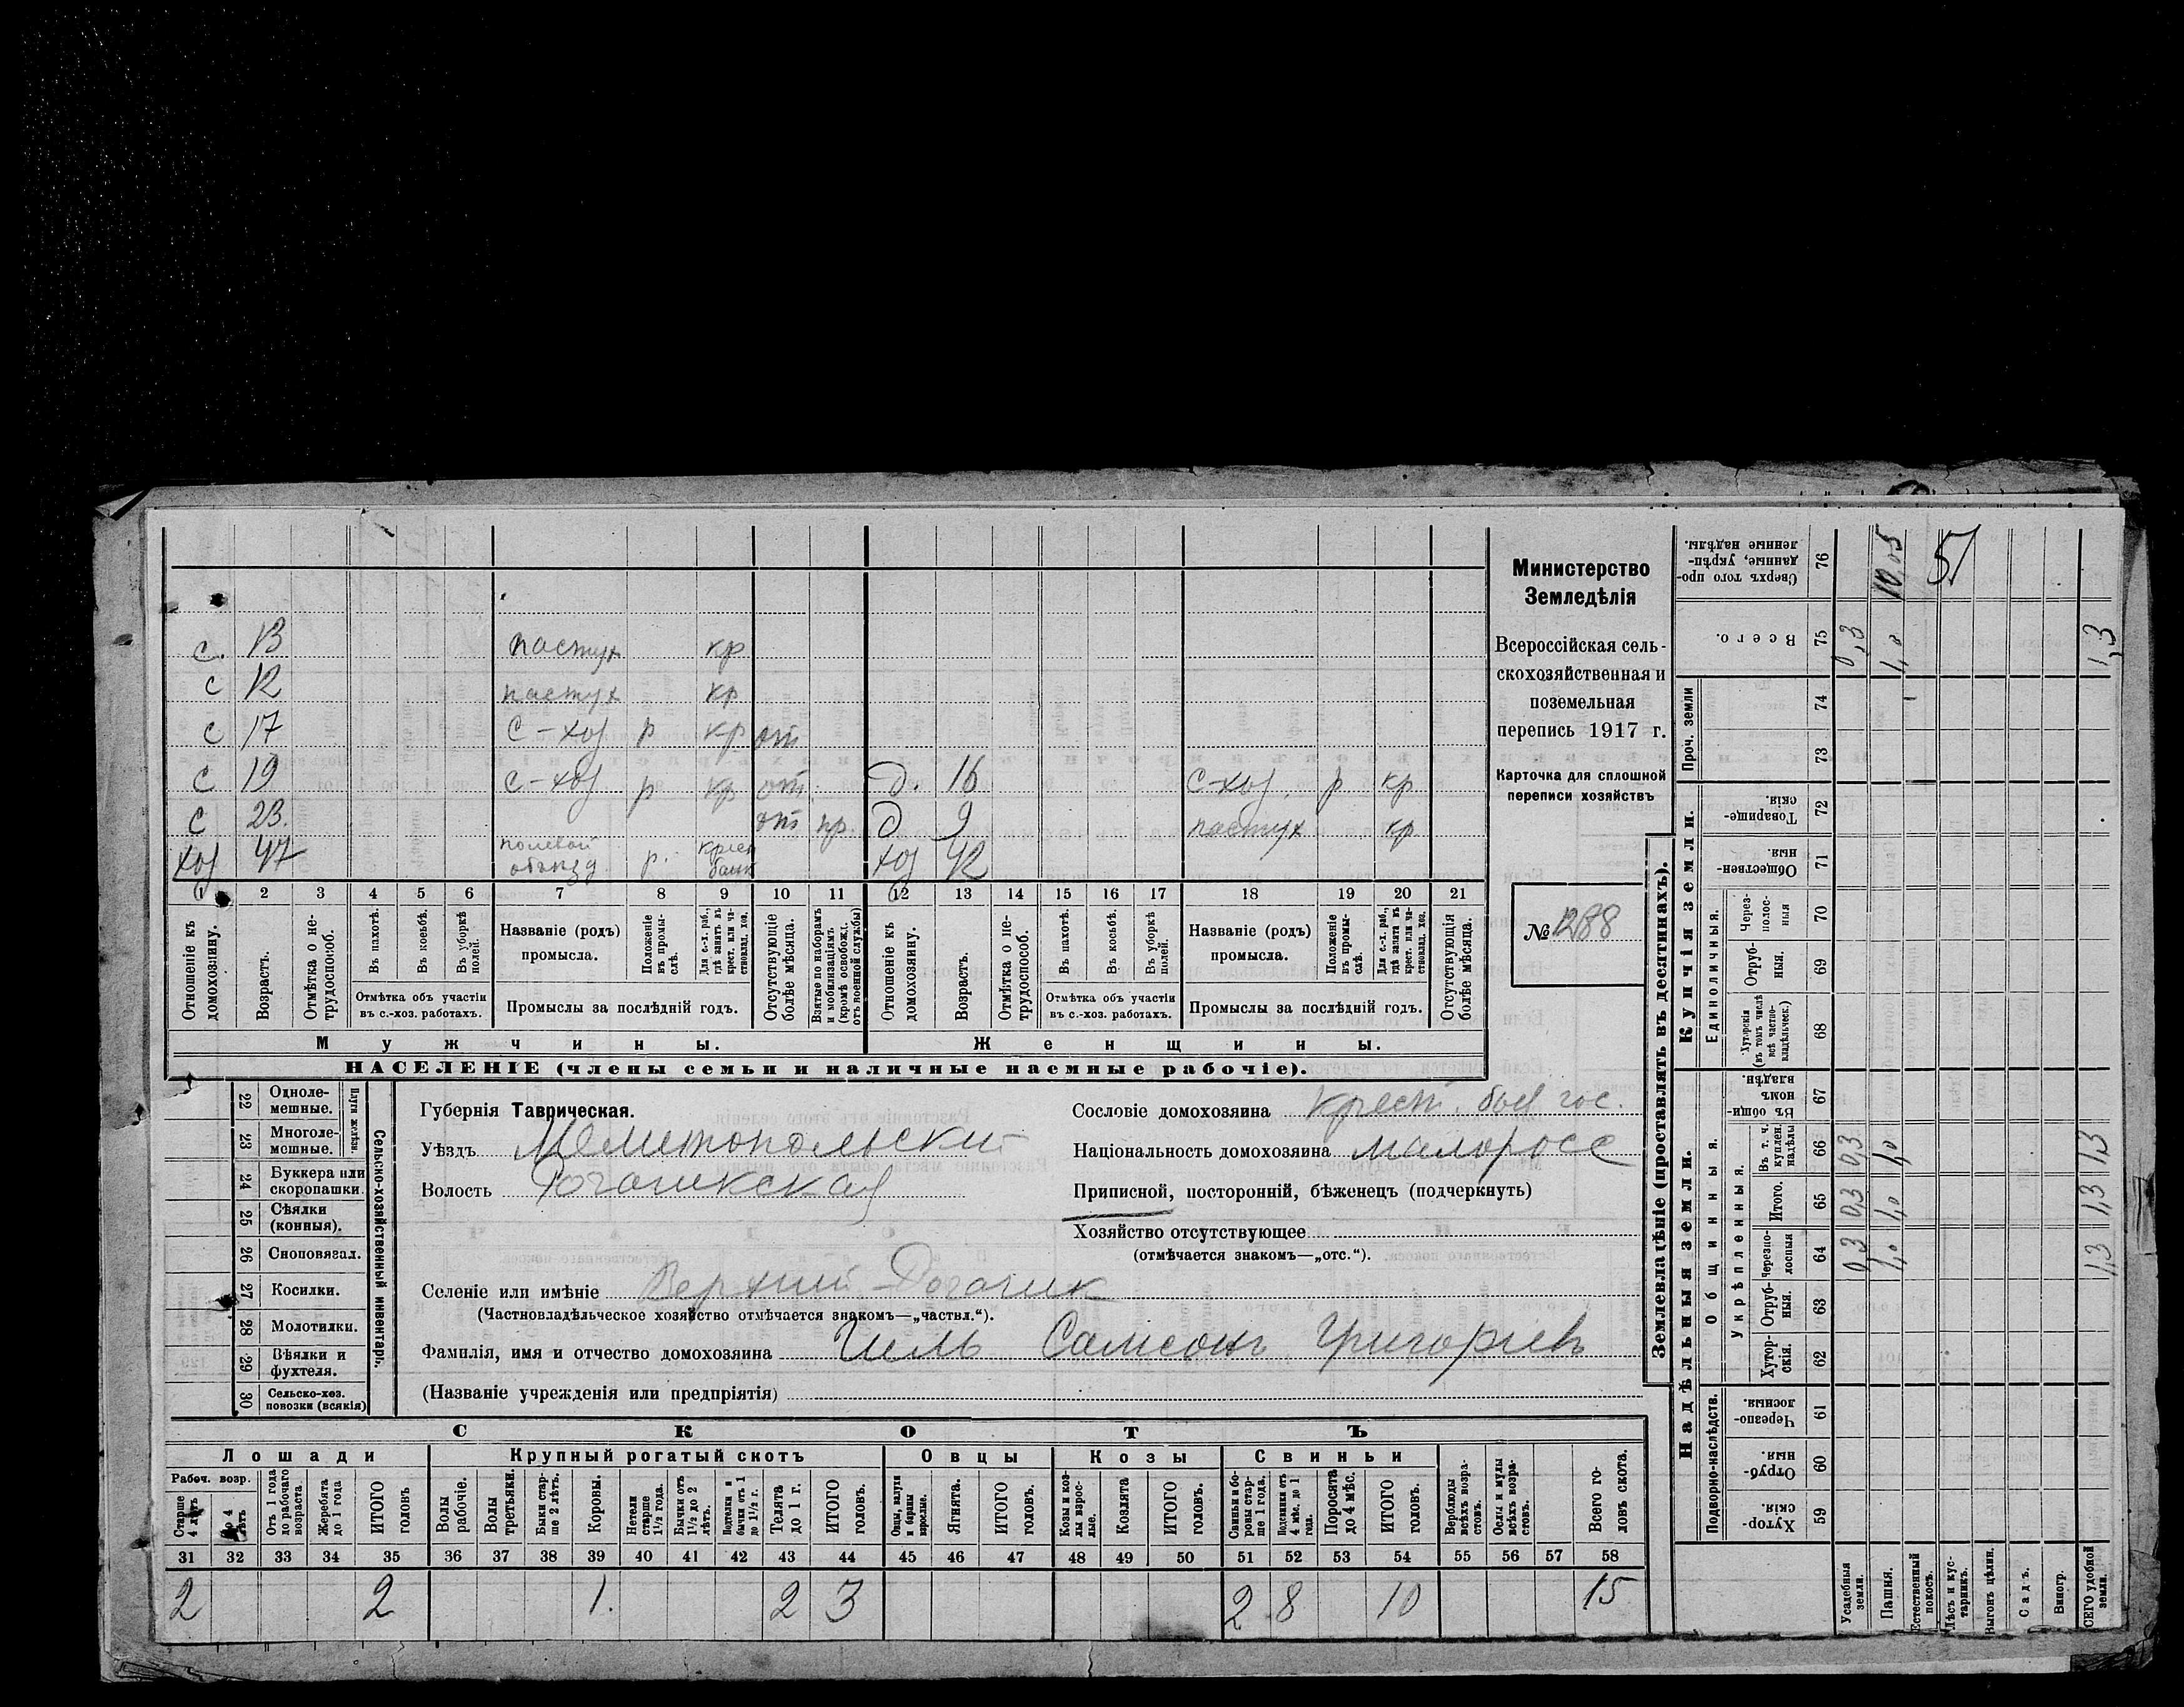 с. 13 пастух кр
с 12 пастух кр
с 17 с-хоз р кр от
с 19 с-хоз р кр от д. 16 с-хоз. р кр
с 23. от пр. д 9 пастух кр
хоз 47 полевой объезд р. крест банк хоз 42
1 2 3 4 5 6 7 8 9 10 11 12 13 14 15 16 17 18 19 20 21
Отношеніе къ домохозяину.
Возрастъ.
Отмѣтка о нетрудоспособ.
Въ пахотѣ.
Въ косьбѣ.
Въ уборкѣ полей.
Отмѣтка объ участіи
въ с.-хоз. работахъ.
Названіе (родъ)
промысла.
Положеніе въ промыслѣ.
Для с.-х. раб., гдѣ занятъ въ крест. или частновлад. хоз.
Промыслы за послѣдній годъ.
Отсутствующіе болѣе мѣсяца.
Взятые по наборамъ и мобилизаціямъ (кромѣ освобожд. отъ военной службы)
Отношеніе къ домохозяину.
Возрастъ.
Отмѣтка о нетрудоспособ.
Въ пахотѣ.
Въ косьбѣ.
Въ уборкѣ полей.
Отмѣтка объ участіи
въ с.-хоз. работахъ.
Названіе (родъ)
промысла.
Положеніе въ промыслѣ.
Для с.-х. раб., гдѣ занята въ крест. или частновлад. хоз.
Промыслы за послѣдній годъ.
Отсутствующія болѣе мѣсяца.
Мужчины. Женщины.
НАСЕЛЕНІЕ (члены семьи и наличные наемные рабочіе).
Министерство
Земледѣлія
Всероссійская сель-
скохозяйственная и
поземельная
перепись 1917 г.
Карточка для сплошной
переписи хозяйствъ
№ 1288
Сельско-хозяйственный инвентарь.
Плуги желѣзн.
22 Одноле-
мешные.
23 Многоле-
мешные.
24 Буккера или
скоропашки.
25 Сѣялки
(конныя).
26 Сноповязал.
27 Косилки.
28 Молотилки.
29 Вѣялки и
фухтеля.
30 Сельско-хоз.
повозки (всякія)
Губернія Таврическая.
Уѣздъ Мелитопольский
Волость Рогачикская
Селеніе или имѣніе Верхний Рогачик
(Частновладѣльческое хозяйство отмѣчается знакомъ—„частвл.“).
Фамилія, имя и отчество домохозяина Цель Самсонъ Григорьевъ
(Названіе учрежденія или предпріятія)
Сословіе домохозяина крест. быв. гос.
Національность домохозяина малоросс
Приписной, посторонній, бѣженецъ (подчеркнуть)
Хозяйство отсутствующее
(отмѣчается знакомъ—„отс.“).
СКОТЪ
Лошади Крупный рогатый скотъ Овцы Козы Свиньи
Рабоч. возр.
Старше 4 лѣтъ
До 4 лѣтъ
Отъ 1 года до рабочаго возраста
Жеребята до 1 года
ИТОГО головъ
Волы рабочіе.
Волы третьяки.
Быки старше 2 лѣтъ.
Коровы.
Нетели старше 1½ года.
Бычки отъ 1½ до 2 лѣтъ.
Подтелки и бычки отъ 1 до 1½ г.
Телята до 1 г.
ИТОГО головъ.
Овцы, валухи и бараны взрослые.
Ягнята.
ИТОГО головъ.
Козы и козлы взрослые.
Козлята
ИТОГО головъ.
Свиньи и боровы старше 1 года.
Подсвинки отъ 4 мѣс. до 1 года.
Поросята до 4 мѣс.
ИТОГО головъ.
Верблюды всѣхъ возрастовъ.
Ослы и мулы всѣхъ возрастовъ.
Всего головъ скота.
31 32 33 34 35 36 37 38 39 40 41 42 43 44 45 46 47 48 49 50 51 52 53 54 55 56 57 58
2 2 1. 2 3 2 8 10 15
Землевладѣніе (проставлять въ десятинахъ).
Надѣльныя земли. Купчія земли.
Подворно-наслѣдств.
Общинныя.
Укрѣпленныя.
Единоличныя.
Проч. земли
59 Хуторскія.
60 Отрубныя.
61 Черезполосныя.
62 Хуторскія.
63 Отрубныя.
64 Черезполосныя
65 Итого.
66 Въ т. ч. куплен. надѣлы
67 Въ общинномъ владѣн.
68 Хуторскія (въ томъ числѣ всѣ частновладѣльческ.)
69 Отрубныя.
70 Черезполосныя
71 Общественныя.
72 Товарищескія.
73
74
75 Всего.
76 Сверхъ того проданные, укрѣпленные надѣлы.
Усадебныя земли. 0,3 0,3 0,3 0,3
Пашня. 1,0 1,0 1,0 1,0 10,05
Естественный покосъ.
Лѣсъ и кустарникъ.
Выгонъ цѣлин.
Садъ.
Виногр.
ВСЕГО удобной земли. 1,3 1,3 1,3 1,3
51